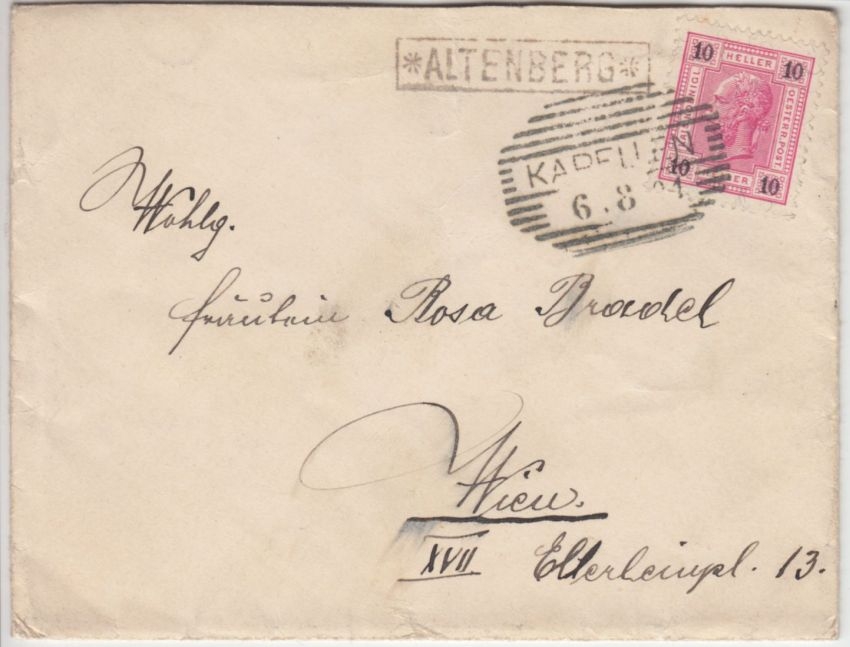 *ALTENBERG*
10 HELLER 10
OESTERR. POST
10 10
KAPELLEN
6.8
Wohlg.
Fräulein Rosa Bradel
Wien.
XVII Elterleinpl. 13.